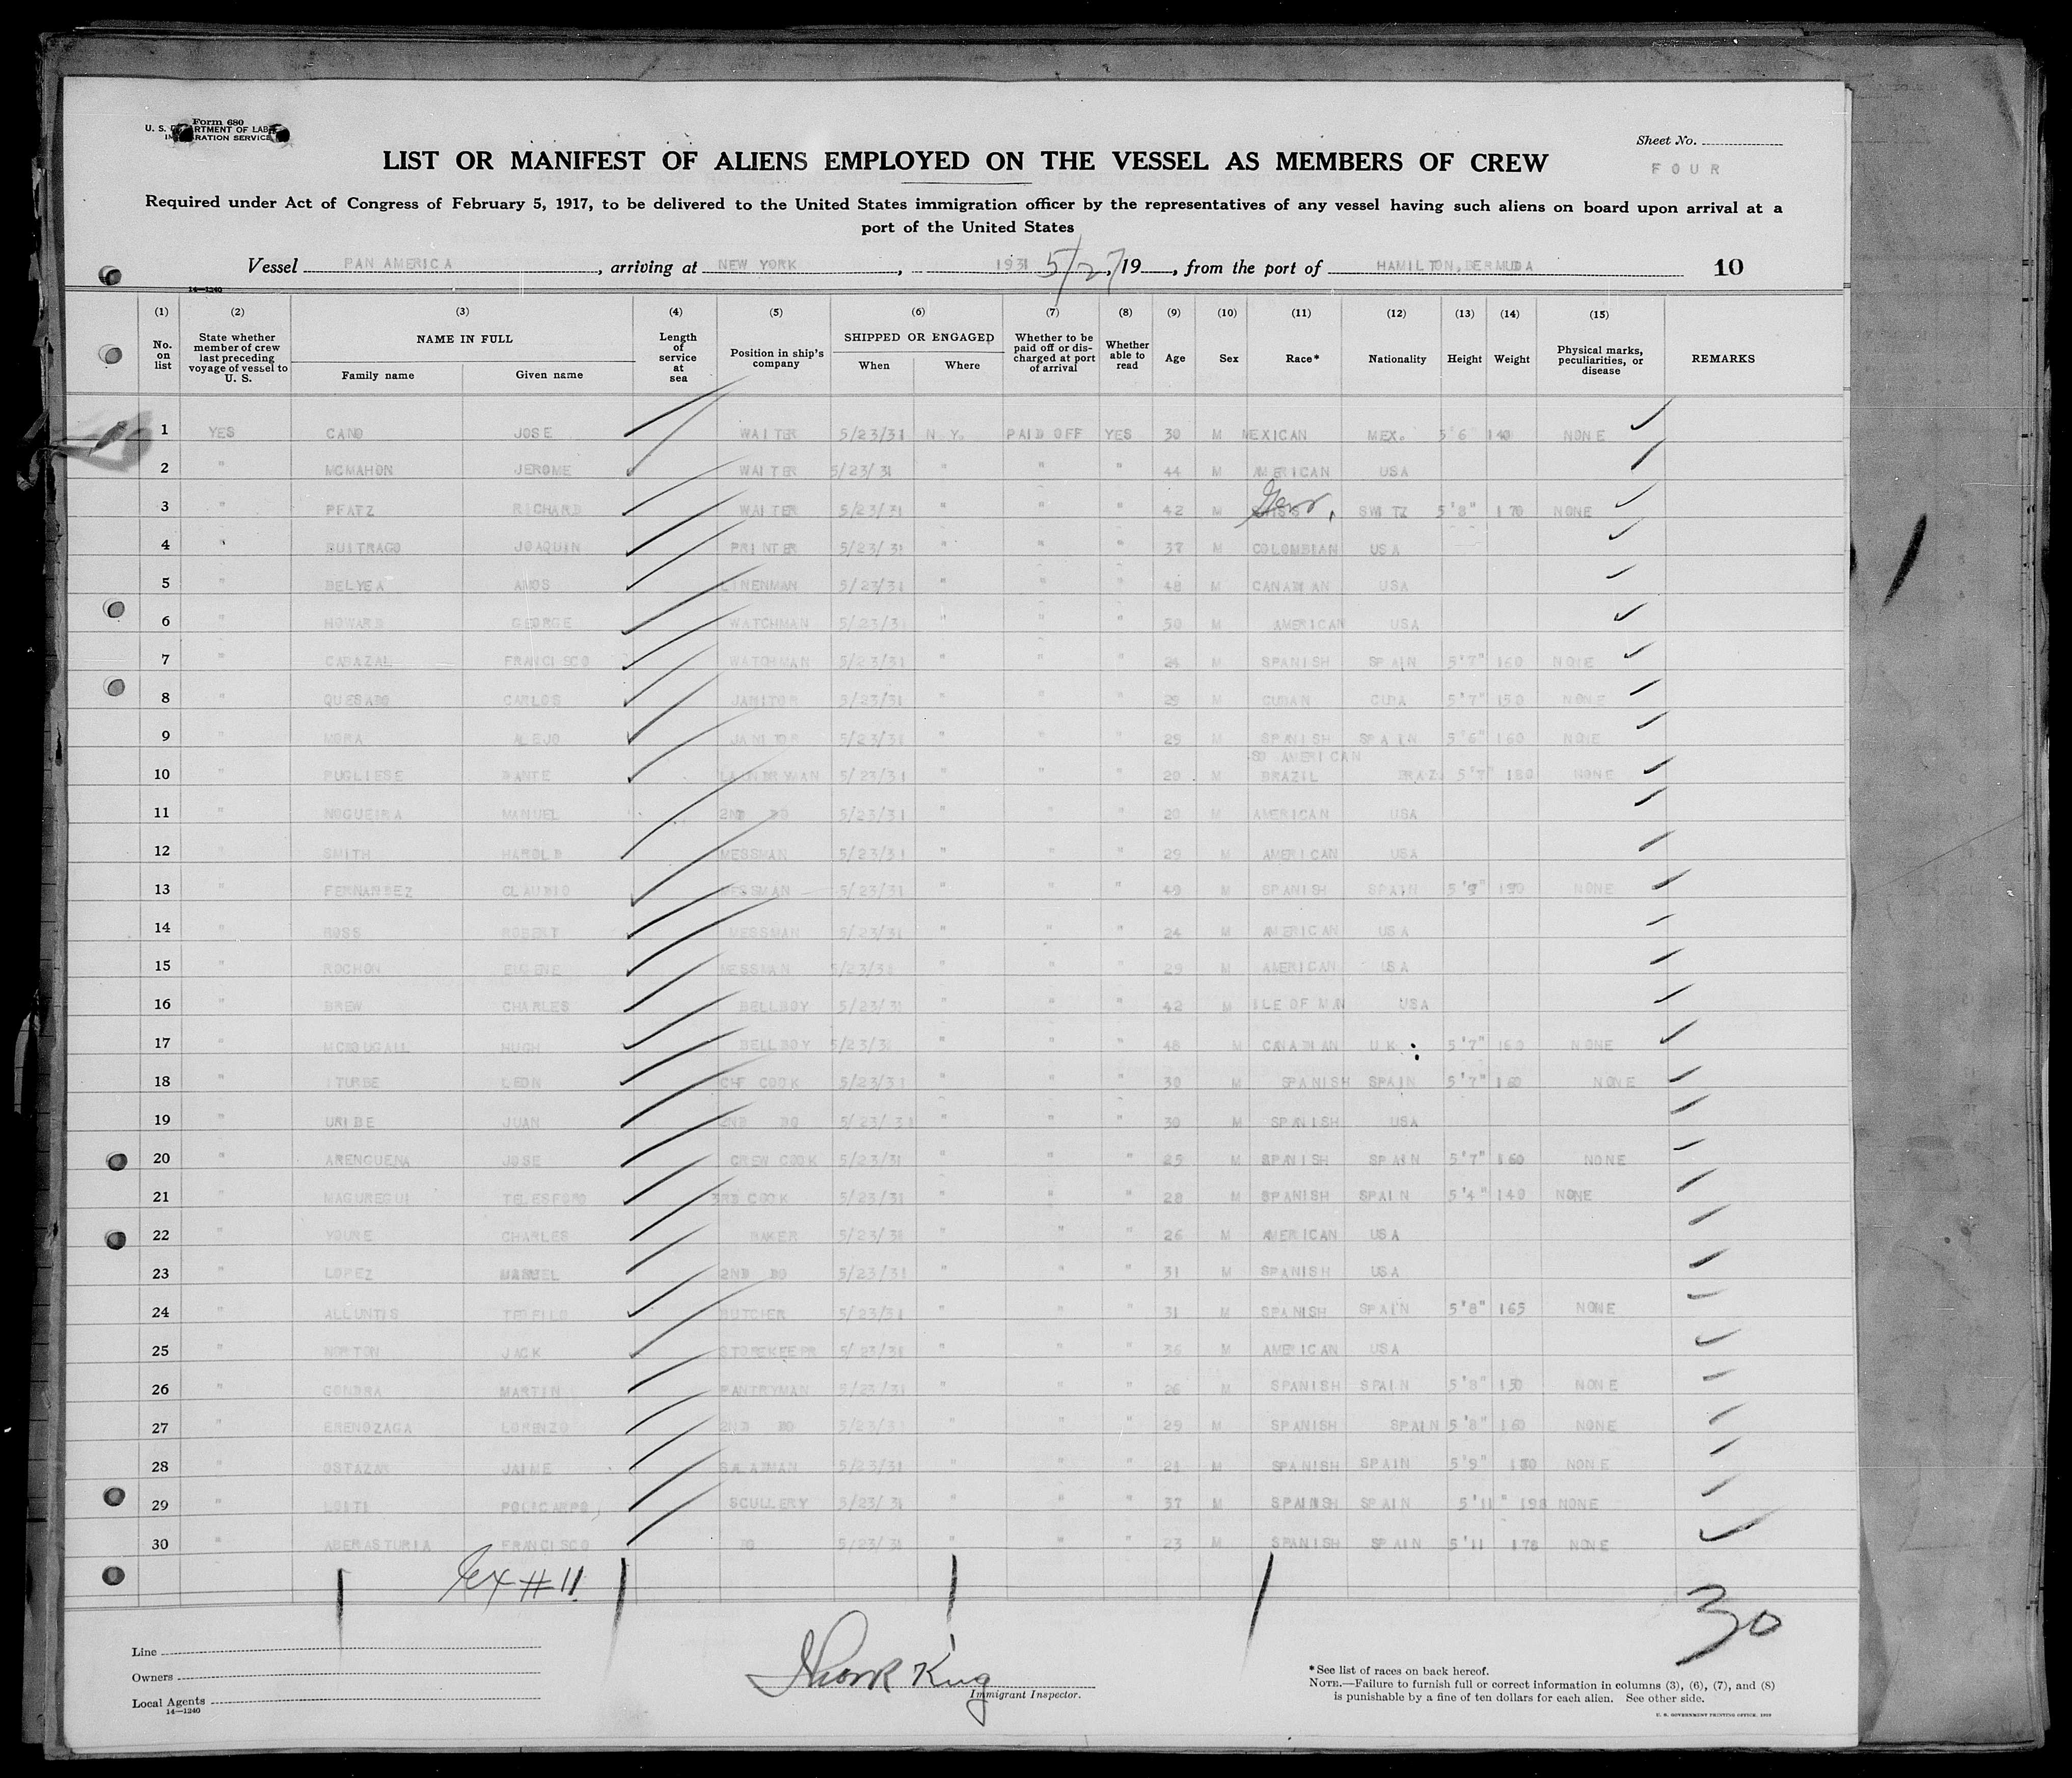 Form 680
U. S. DEPARTMENT OF LABOR
IMMIGRATION SERVICE
Sheet No.
FOUR
LIST OR MANIFEST OF ALIENS EMPLOYED ON THE VESSEL AS MEMBERS OF CREW
Required under Act of Congress of February 5, 1917, to be delivered to the United States immigration officer by the representatives of any vessel having such aliens on board upon arrival at a
port of the United States
Vessel PAN AMERICA, arriving at NEW YORK, 1931 5/27, 19, from the port of HAMILTON, BERMUDA 10
14—1240
(1) (2) (3) (4) (5) (6) (7) (8) (9) (10) (11) (12) (13) (14) (15)
No. on list State whether member of crew last preceding voyage of vessel to U. S. NAME IN FULL Family name Given name Length of service at sea Position in ship's company SHIPPED OR ENGAGED When Where Whether to be paid off or discharged at port of arrival Whether able to read Age Sex Race* Nationality Height Weight Physical marks, peculiarities, or disease REMARKS
1 YES CANO JOSE WAITER 5/23/31 N.Y. PAID OFF YES 30 M MEXICAN MEX. 5'6" 140 NONE
2 " MCMAHON JEROME WAITER 5/23/31 " " " 44 M AMERICAN USA
3 " PFATZ RICHARD WAITER 5/23/31 " " " 42 M SWISS Ger. SWITZ 5'8" 170 NONE
4 " BUITRAGO JOAQUIN PRINTER 5/23/31 " " " 37 M COLOMBIAN USA
5 " BELYEA AMOS LINENMAN 5/23/31 " " " 48 M CANADIAN USA
6 " HOWARD GEORGE WATCHMAN 5/23/31 " " " 50 M AMERICAN USA
7 " CABAZAL FRANCISCO WATCHMAN 5/23/31 " " " 24 M SPANISH SPAIN 5'7" 160 NONE
8 " QUESADO CARLOS JANITOR 5/23/31 " " " 29 M CUBAN CUBA 5'7" 150 NONE
9 " MORA ALEJO JANITOR 5/23/31 " " " 29 M SPANISH SPAIN 5'6" 160 NONE
10 " PUGLIESE DANTE LAUNDRYMAN 5/23/31 " " " 29 M SO AMERICAN BRAZIL BRAZ. 5'7" 180 NONE
11 " NOGUEIRA MANUEL 2ND DO 5/23/31 " " " 20 M AMERICAN USA
12 " SMITH HAROLD MESSMAN 5/23/31 " " " 29 M AMERICAN USA
13 " FERNANDEZ CLAUDIO MESSMAN 5/23/31 " " " 49 M SPANISH SPAIN 5'9" NONE
14 " ROSS ROBERT MESSMAN 5/23/31 " " " 24 M AMERICAN USA
15 " ROCHON EUGENE MESSMAN 5/23/31 " " " 29 M AMERICAN USA
16 " BREW CHARLES BELLBOY 5/23/31 " " " 42 M ILE OF MAN USA
17 " MCDOUGALL HUGH BELLBOY 5/23/31 " " " 48 M CANADIAN U K 5'7" 160 NONE
18 " ITURBE LEON CHF COOK 5/23/31 " " " 30 M SPANISH SPAIN 5'7" 160 NONE
19 " URIBE JUAN 2ND DO 5/23/31 " " " 30 M SPANISH USA
20 " ARENGUENA JOSE CREW COOK 5/23/31 " " " 25 M SPANISH SPAIN 5'7" 160 NONE
21 " MAGUREGUI TELESFORO 3RD COOK 5/23/31 " " " 28 M SPANISH SPAIN 5'4" 140 NONE
22 " YOURE CHARLES BAKER 5/23/31 " " " 26 M AMERICAN USA
23 " LOPEZ MANUEL 2ND DO 5/23/31 " " " 31 M SPANISH USA
24 " ALLUNTIS TEOFILO BUTCHER 5/23/31 " " " 31 M SPANISH SPAIN 5'8" 165 NONE
25 " NORTON JACK STOREKEEPR 5/23/31 " " " 36 M AMERICAN USA
26 " GONDRA MARTIN PANTRYMAN 5/23/31 " " " 26 M SPANISH SPAIN 5'8" 150 NONE
27 " ERENOZAGA LORENZO 2ND DO 5/23/31 " " " 29 M SPANISH SPAIN 5'8" 160 NONE
28 " OSTAZAR JAIME SALADMAN 5/23/31 " " " 24 M SPANISH SPAIN 5'9" NONE
29 " LOITI POLICARPO SCULLERY 5/23/31 " " " 37 M SPANISH SPAIN 5'11" 198 NONE
30 " ABERASTURIA FRANCISCO DO 5/23/31 " " " 23 M SPANISH SPAIN 5'11 178 NONE
30
Line
Owners
Local Agents
14—1240
King
Immigrant Inspector.
*See list of races on back hereof.
NOTE.—Failure to furnish full or correct information in columns (3), (6), (7), and (8)
is punishable by a fine of ten dollars for each alien. See other side.
U. S. GOVERNMENT PRINTING OFFICE